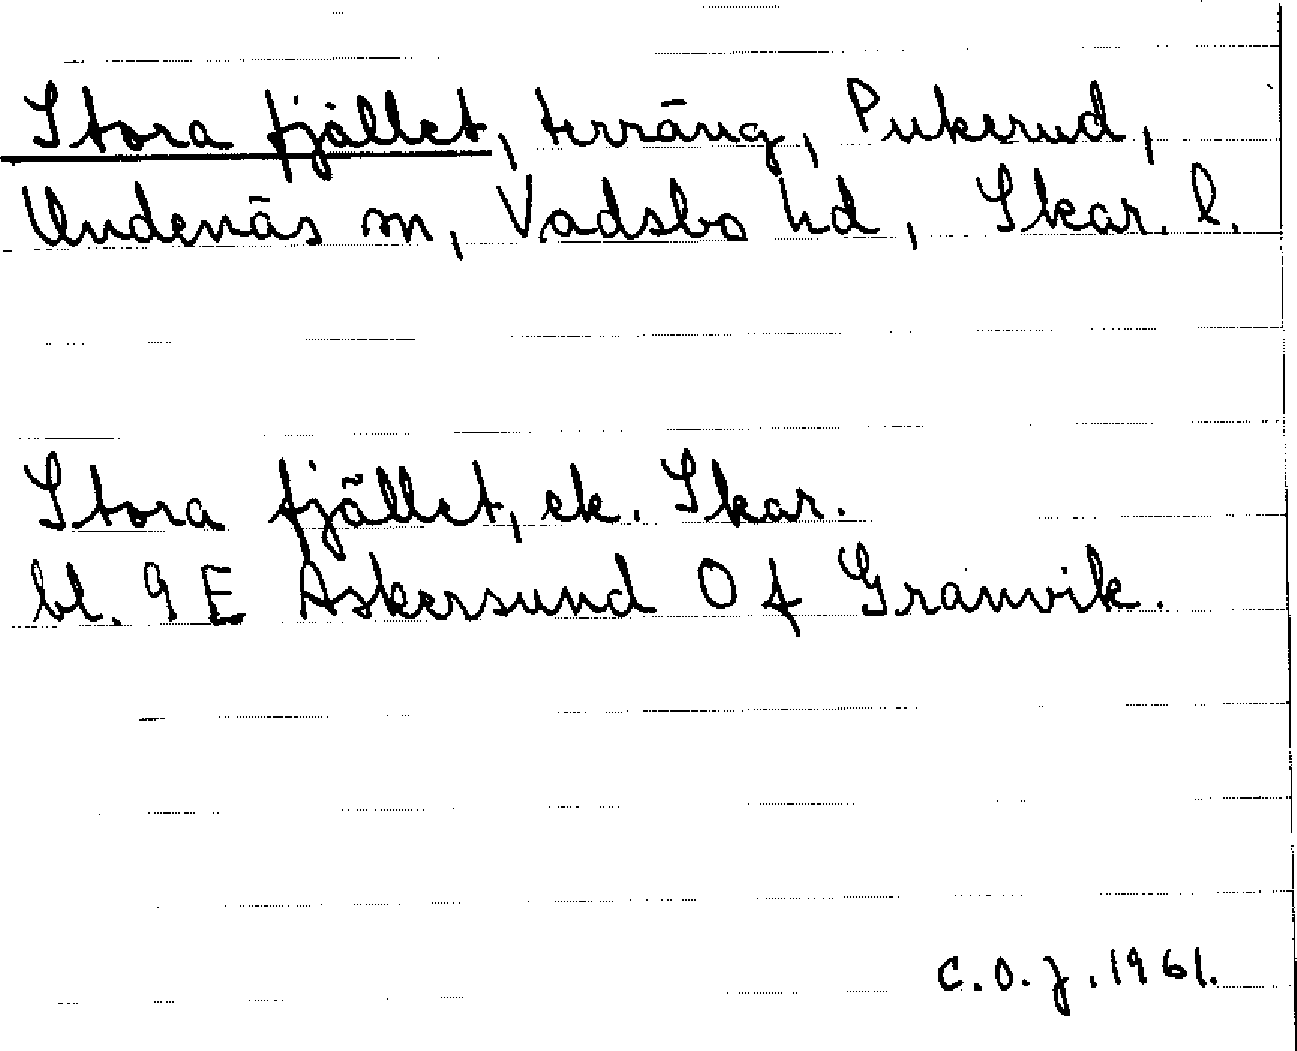 Stora fjället, terräng, Pukerud,
Undenäs sn, Vadsbo hd, Skar. l.
Stora fjället, ek. Skar.
bl. 9 E Askersund O f Granvik.
C.O.J. 1961.